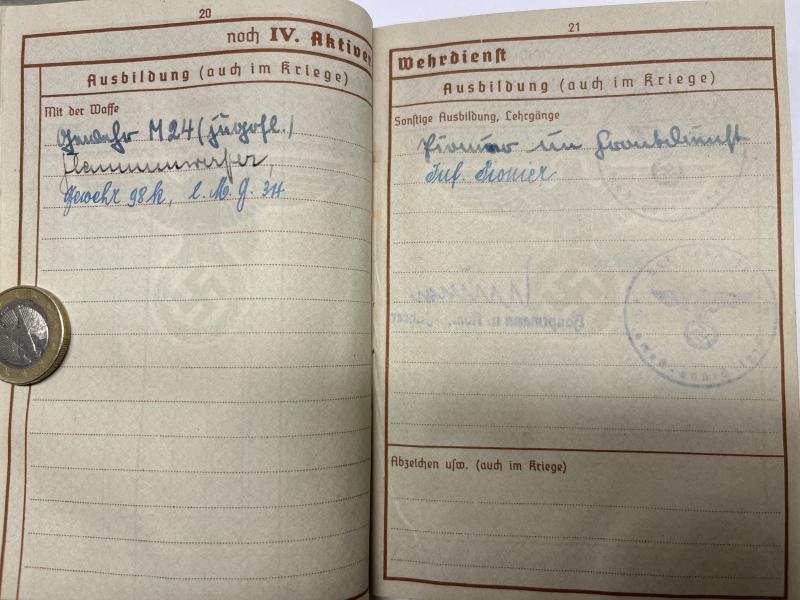 20
noch IV. Aktiver
Ausbildung (auch im Kriege)
Mit der Waffe
Gewehr M 24 (jugosl.)
Flammenwerfer,
Gewehr 98k, l. M. G. 34
21
Wehrdienst
Ausbildung (auch im Kriege)
Sonstige Ausbildung, Lehrgänge
Pionier im Frontdienst
Inf. Pionier
Hauptmann u. Komp.
Abzeichen usw. (auch im Kriege)